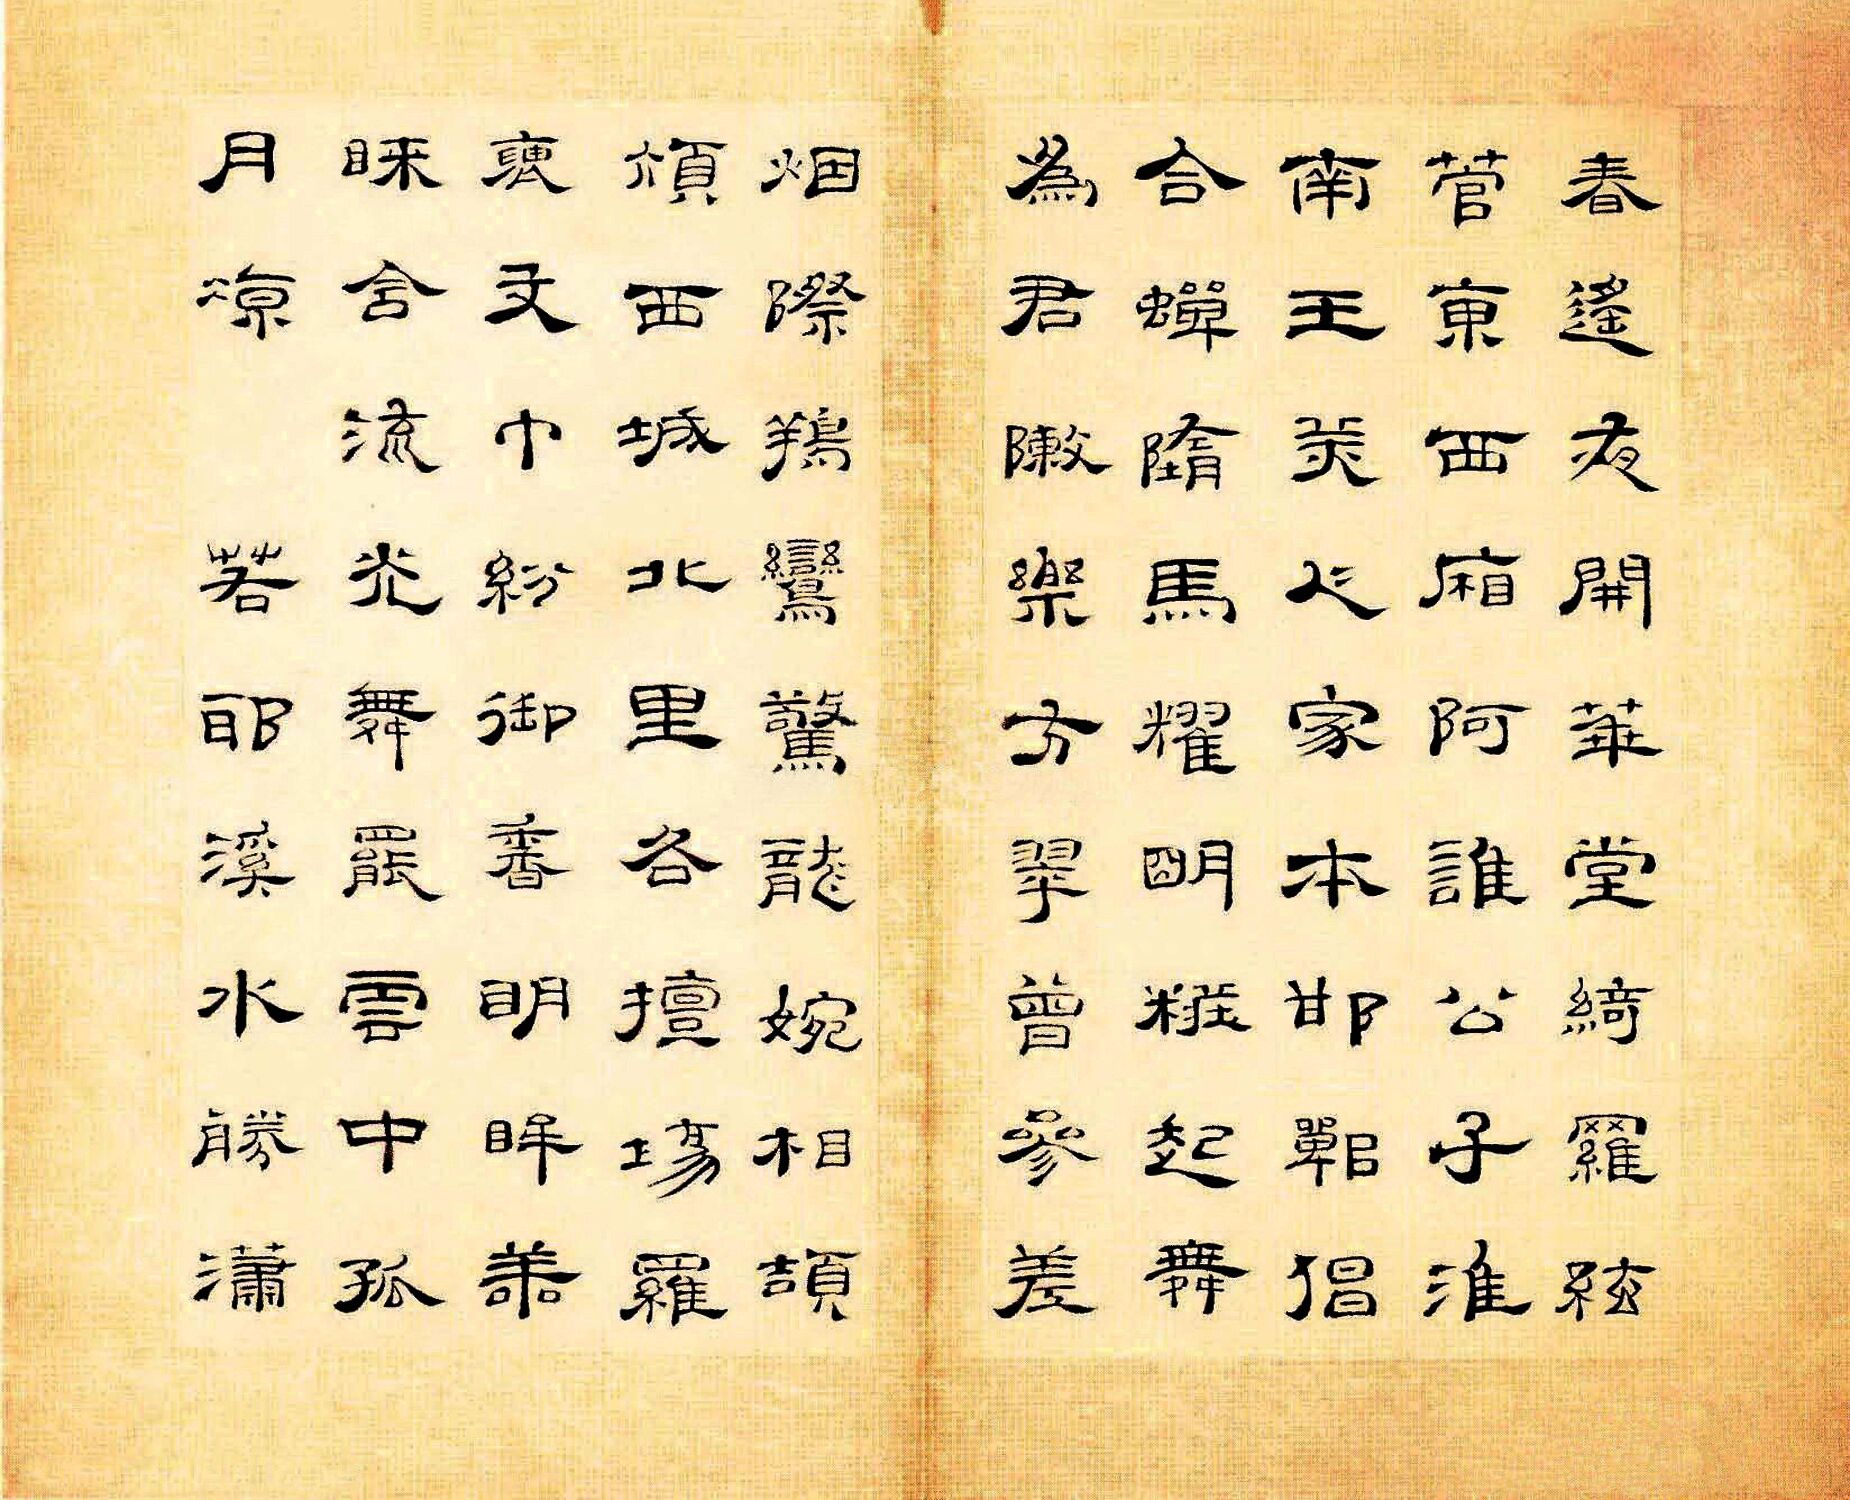 春遙夜開華堂綺羅絃
菅東西廂阿誰公子淮
南王美人家本邯鄲倡
合蟬隋馬耀明糚起舞
為君敶樂方翠曾參差
烟際鴹鸞驚龍婉相頡
頏西城北里各擅場羅
巾紛御香明眸善
睞含流光舞罷雲中孤
月涼 若耶溪水勝瀟